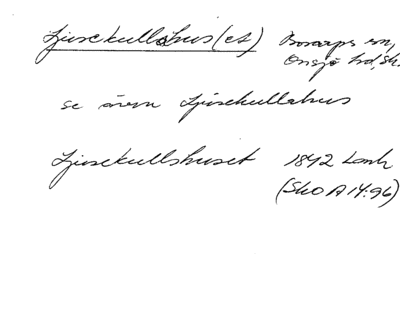 Ljusekullshus(et) Bosarps sn,
Onsjö hd, Sk.
se även Ljusekullahus
Ljusekullshuset 1842 Lank
(SkO A14:96)